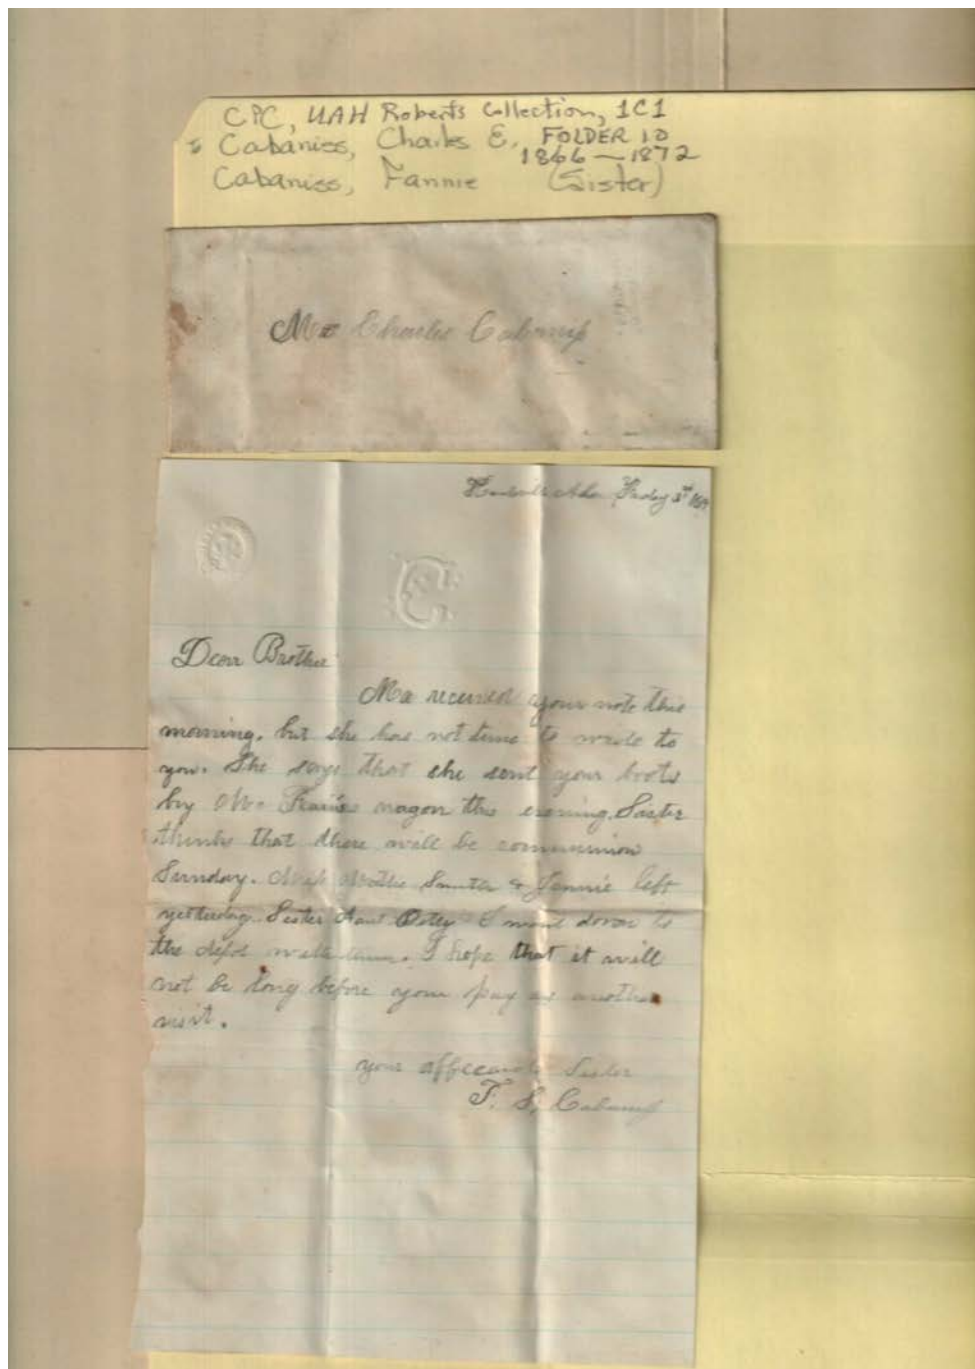 CPC, UAH Roberts Collection, 1C1
Cabaniss, Charles E. FOLDER 10
1866-1872
Cabaniss, Fannie (Sister)
Charles Cabaniss
Friday 3rd
C
Dear Brother
Ma received your note this
morning. but she has not time to write to
you. She says that she sent your boots
by Mr wagon this evening. Sister
thinks that there will be communion
Sunday. Miss Mollie & Jennie left
yesterday. Sister Aunt & I went down to
the depot with them. I hope that it will
not be long before you pay us another
visit.
your Sister
F. S. Cabaniss